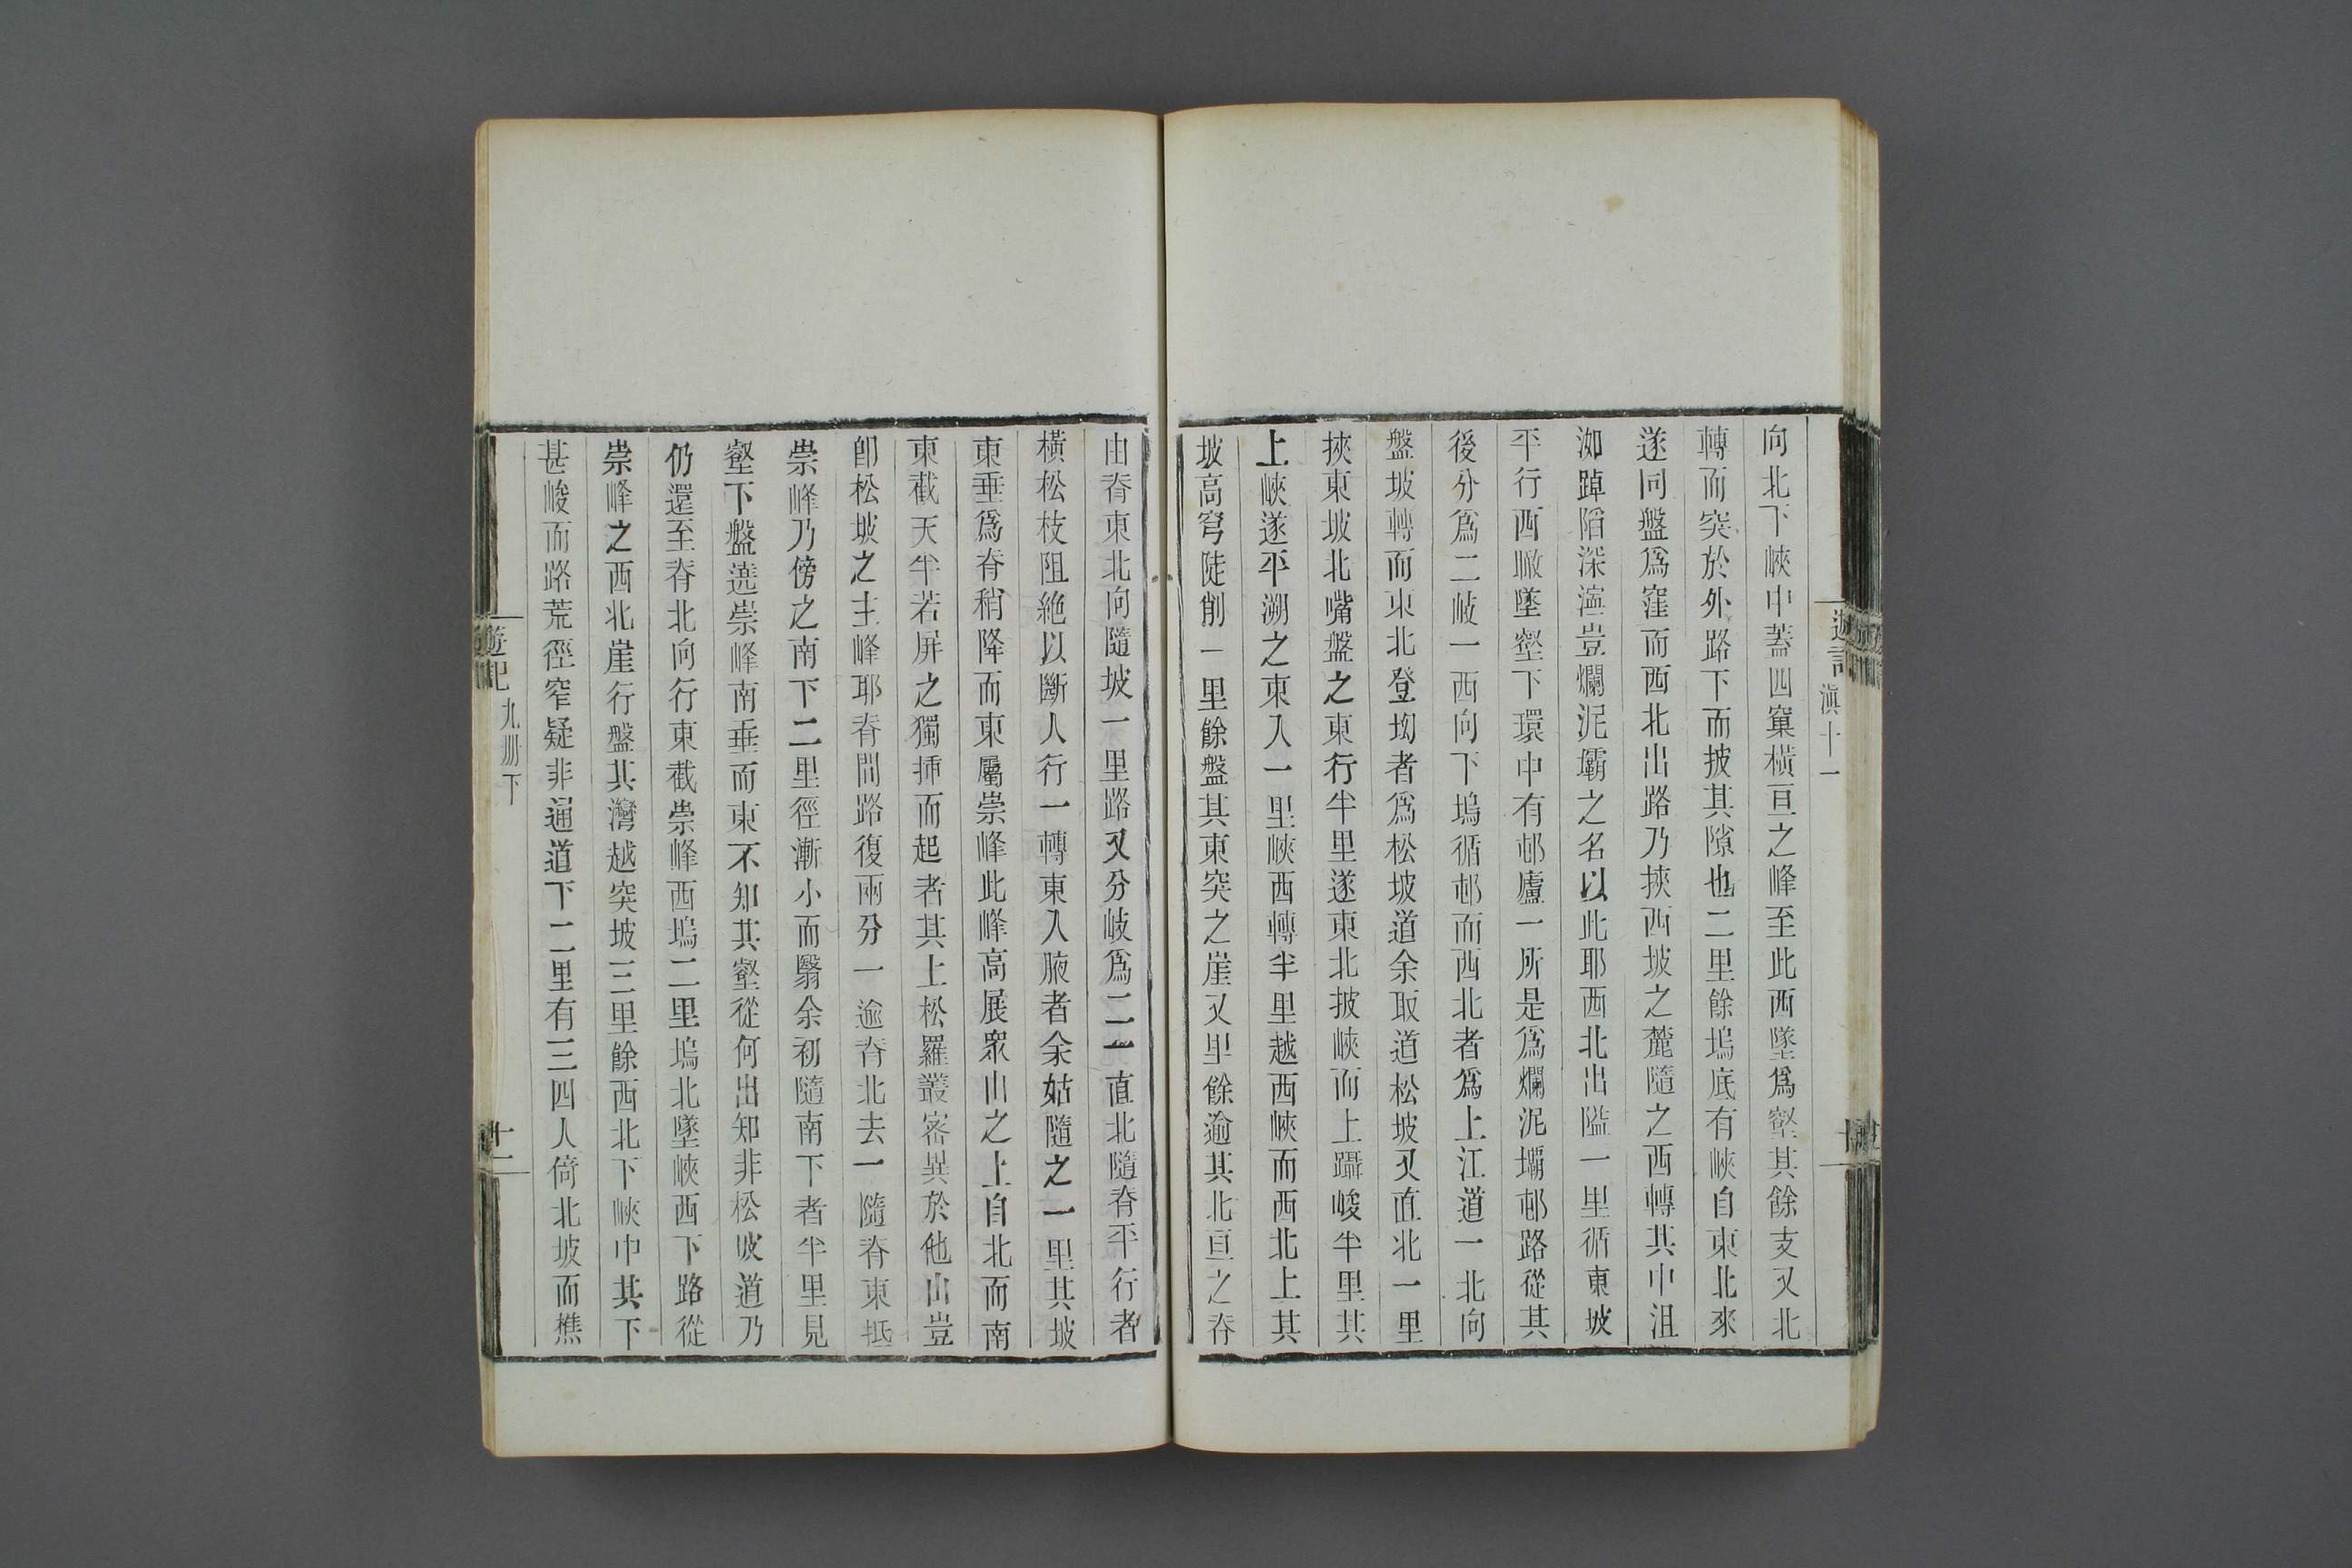 遊記 滇十一
向北下峽中蓋四窠橫亘之峰至此西墜爲壑其餘支又北
轉而突於外路下而披其隙也二里餘塢底有峽自東北來
遂同盤爲窪而西北出路乃挾西坡之麓隨之西轉其中沮
洳踔陷深濘豈爛泥壩之名以此耶西北出隘一里循東坡
平行西瞰墜壑下環中有邨廬一所是爲爛泥壩邨路從其
後分爲二岐一西向下塢循邨而西北者爲上江道一北向
盤坡轉而東北登坳者爲松坡道余取道松坡又直北一里
挾東坡北嘴盤之東行半里遂東北披峽而上躡峻半里其
上峽遂平溯之東入一里峽西轉半里越西峽而西北上其
坡高穹陡削一里餘盤其東突之崖又里餘逾其北亘之脊
由脊東北向隨坡一里路又分岐爲二一直北隨脊平行者
橫松枝阻絶以斷人行一轉東入腋者余姑隨之一里其坡
東垂爲脊稍降而東屬崇峰此峰高展衆山之上自北而南
東截天半若屏之獨插而起者其上松羅叢密異於他山豈
卽松坡之主峰耶脊間路復兩分一逾脊北去一隨脊東抵
崇峰乃傍之南下二里徑漸小而翳余初隨南下者半里見
壑下盤遶崇峰南垂而東不知其壑從何出知非松坡道乃
仍還至脊北向行東截崇峰西塢二里塢北墜峽西下路從
崇峰之西北崖行盤其灣越突坡三里餘西北下峽中其下
甚峻而路荒徑窄疑非通道下二里有三四人倚北坡而樵
遊記 九冊下
十一